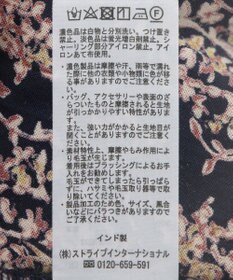 濃色品は白物と分別洗い、つけ置き
禁止。淡色品は蛍光増白剤禁止。シ
ャーリング部分アイロン禁止。アイ
ロンあて布使用。
・濃色製品は摩擦や汗、雨等で濡れ
た際に他の衣類や小物などに色が移
る事がありますのでご注意くださ
い。
・バッグ、アクセサリーや表面のざ
らついたものと摩擦すると生地が
引っかかりやすい特性があります。
また、強い力がかかると生地が目
開きことがありますのでご注意くだ
さい。
・素材特性上、摩擦やもみ作用によ
り毛玉が生じます。
着用後はブラッシングによるお手
入れをお勧めします。
毛玉ができてしまったら引っぱら
ずに、ハサミや毛玉取り器等で取り
除いてください。
・製品の色の出方、サイズ、風合い
などにばらつきがありますのでご了
承ください。
インド製
(株)ストライプインターナショナル
☎ 0120-659-591